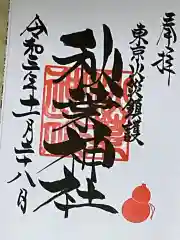 奉拝
東京火防鎮護
秋葉神社
令和三年十一月二十八日